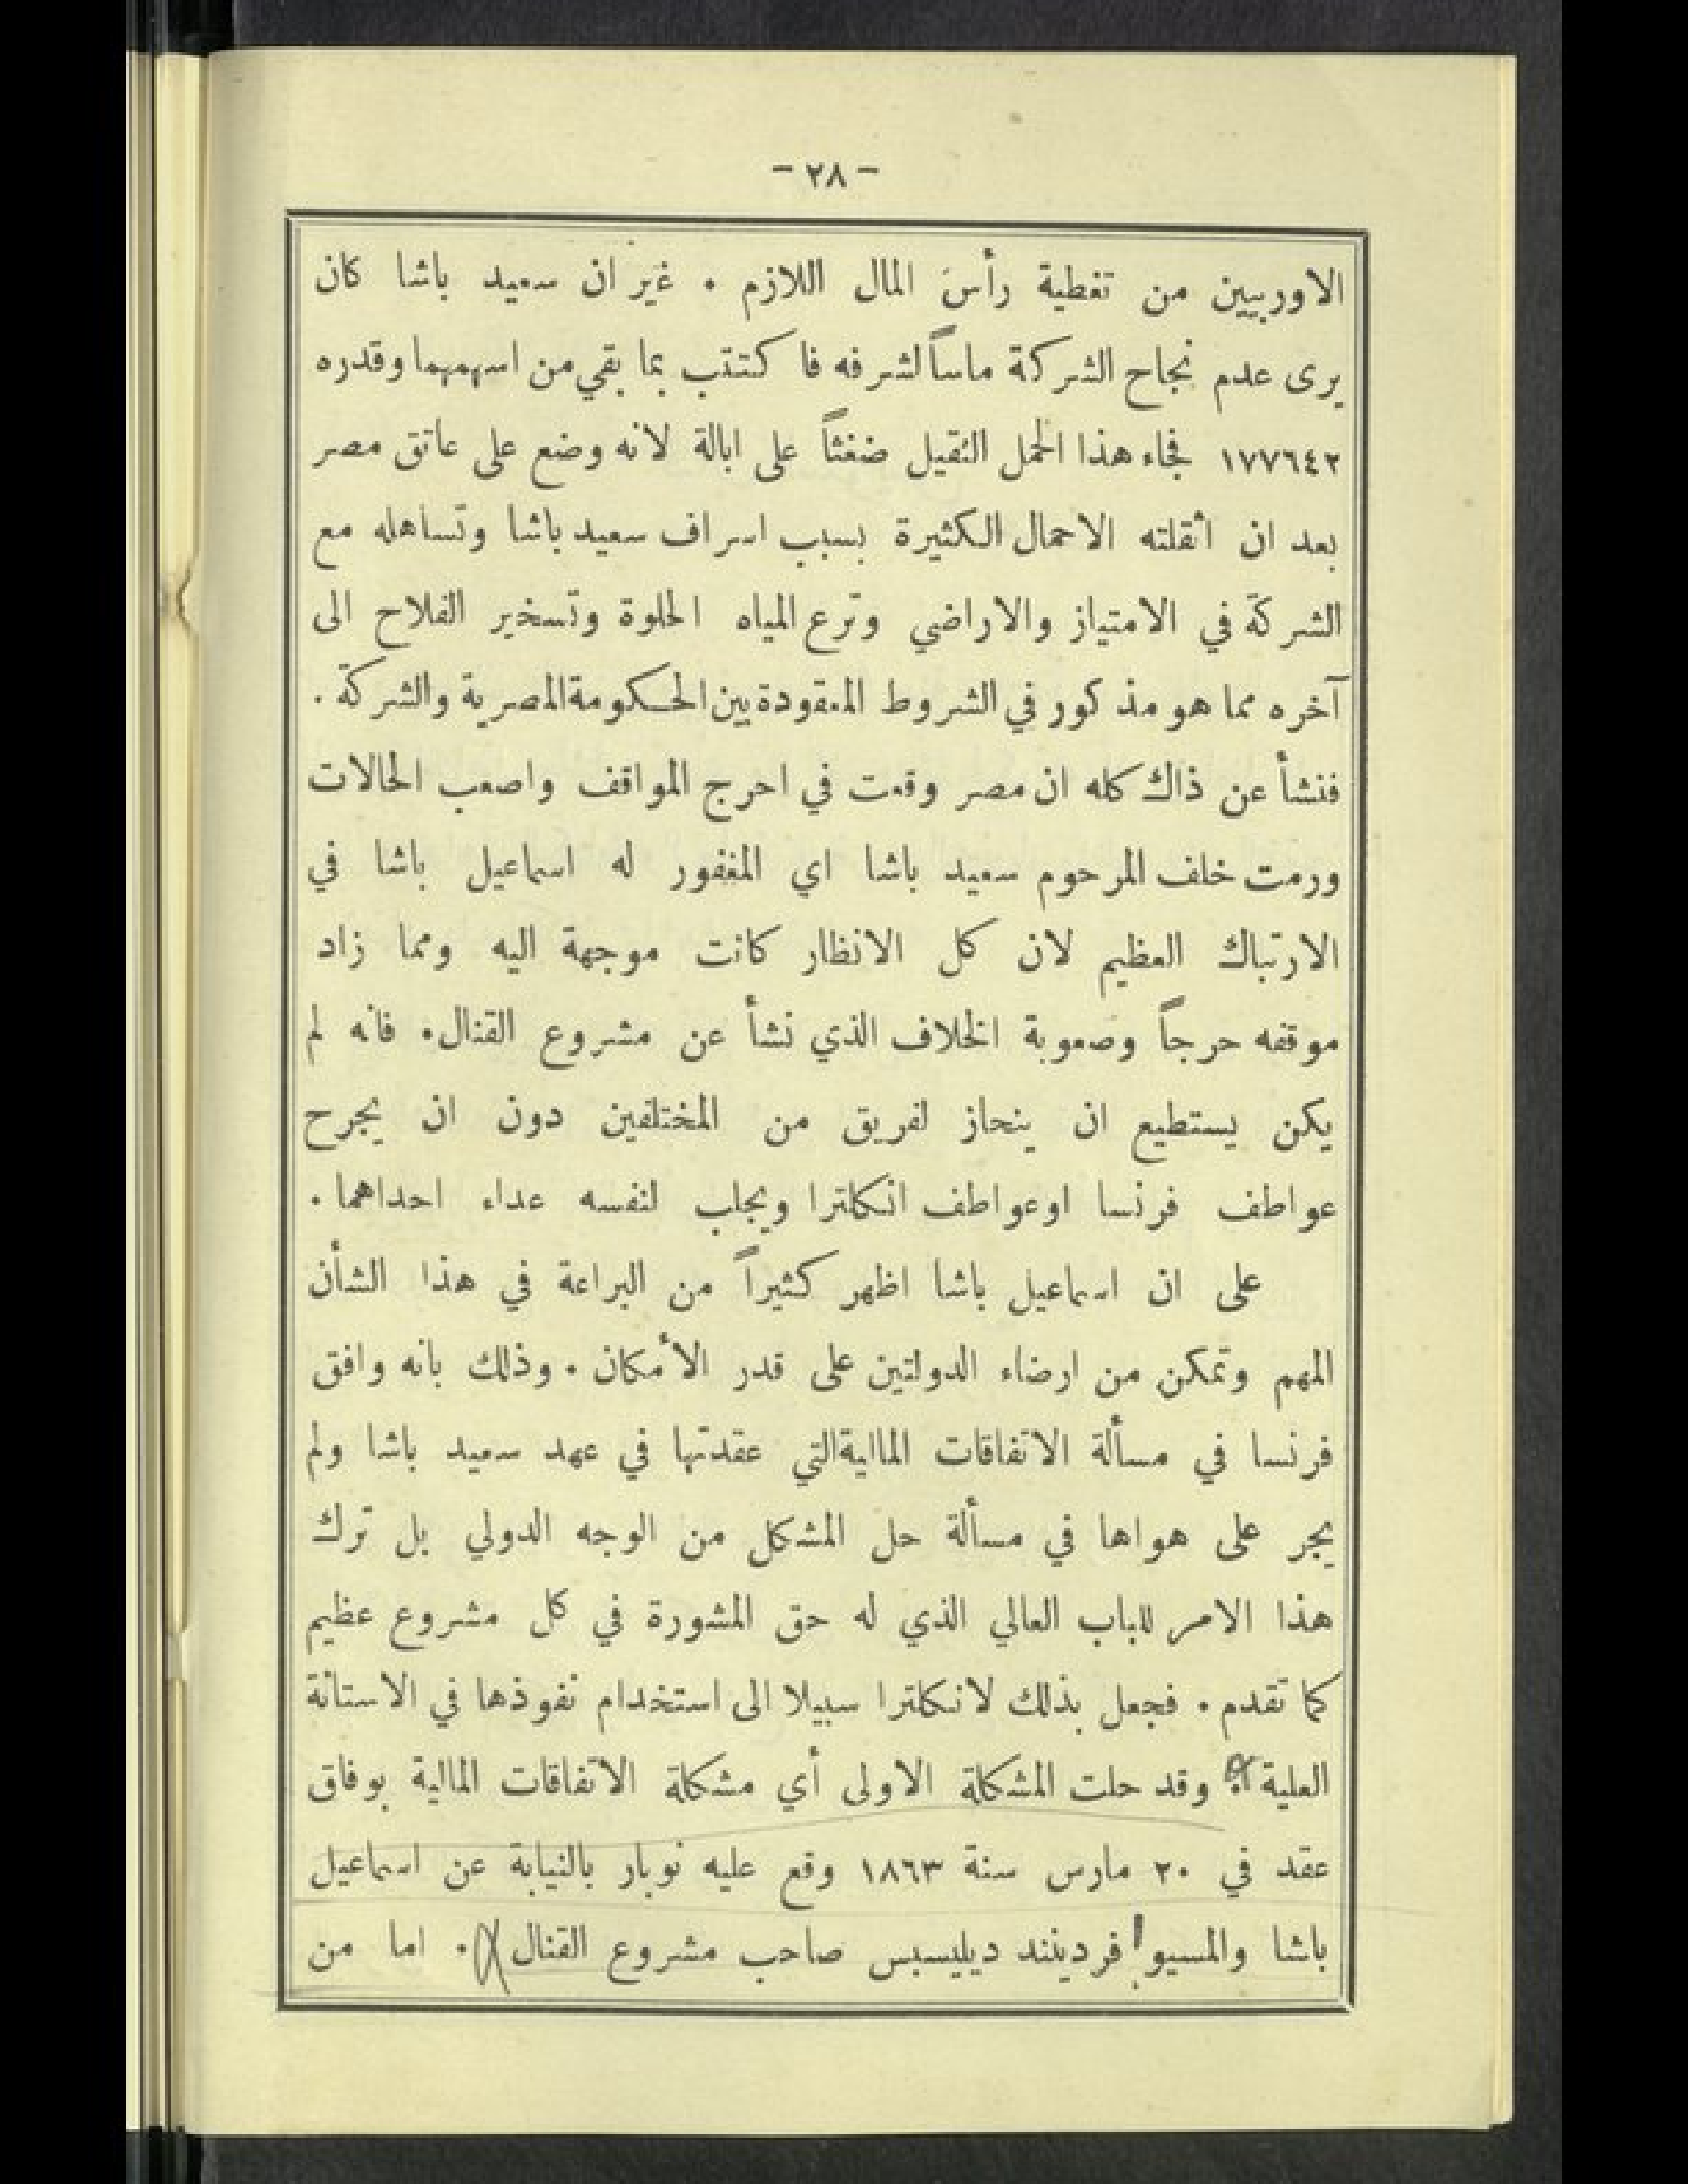 - ٢٨ -
الاوربيين من تغطية رأس المال اللازم . غير ان سعيد باشا كان
يرى عدم نجاح الشركة ماساً لشرفه فاكتتب بما بقي من اسهمهما وقدره
١٧٧٦٤٢ فجاء هذا الحمل الثقيل ضغثاً على ابالة لانه وضع على عاتق مصر
بعد ان اثقلته الاحمال الكثيرة بسبب اسراف سعيد باشا وتساهله مع
الشركة في الامتياز والاراضي وترع المياه الحلوة وتسخير الفلاح الى
آخره مما هو مذكور في الشروط المعقودة بين الحكومة المصرية والشركة .
فنشأ عن ذاك كله ان مصر وقعت في احرج المواقف واصعب الحالات
ورمت خلف المرحوم سعيد باشا اي المغفور له اسماعيل باشا في
الارتباك العظيم لان كل الانظار كانت موجهة اليه ومما زاد
موقفه حرجاً وصعوبة الخلاف الذي نشأ عن مشروع القنال . فانه لم
يكن يستطيع ان ينحاز لفريق من المختلفين دون ان يجرح
عواطف فرنسا او عواطف انكلترا ويجلب لنفسه عداء احداهما .
على ان اسماعيل باشا اظهر كثيراً من البراعة في هذا الشأن
المهم وتمكن من ارضاء الدولتين على قدر الأمكان . وذلك بانه وافق
فرنسا في مسألة الاتفاقات المالية التي عقدتها في عهد سعيد باشا ولم
يجر على هواها في مسألة حل المشكل من الوجه الدولي بل ترك
هذا الامر للباب العالي الذي له حق المشورة في كل مشروع عظيم
كما تقدم . فجعل بذلك لانكلترا سبيلا الى استخدام نفوذها في الاستانة
العلية . وقد حلت المشكلة الاولى أي مشكلة الاتفاقات المالية بوفاق
عقد في ٢٠ مارس سنة ١٨٦٣ وقع عليه نوبار بالنيابة عن اسماعيل
باشا والمسيو فردينند ديليسبس صاحب مشروع القنال . اما من